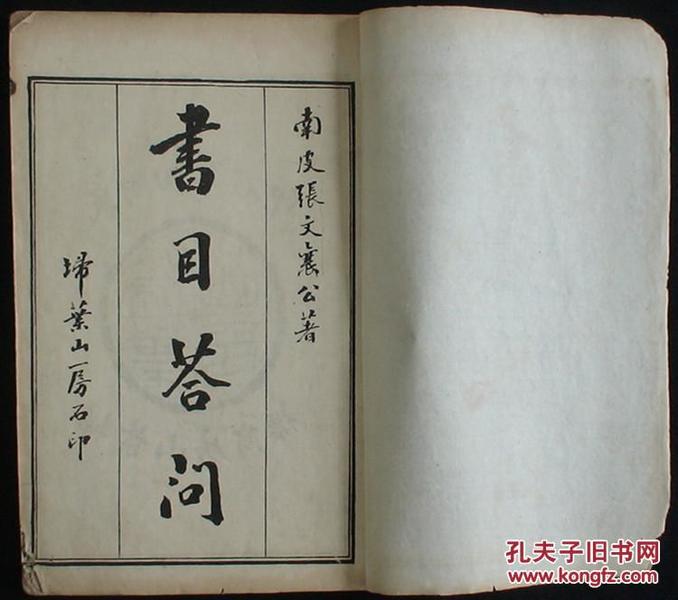 南皮張文襄公著
書目荅问
埽葉山房石印
孔夫子旧书网
www.kongfz.com